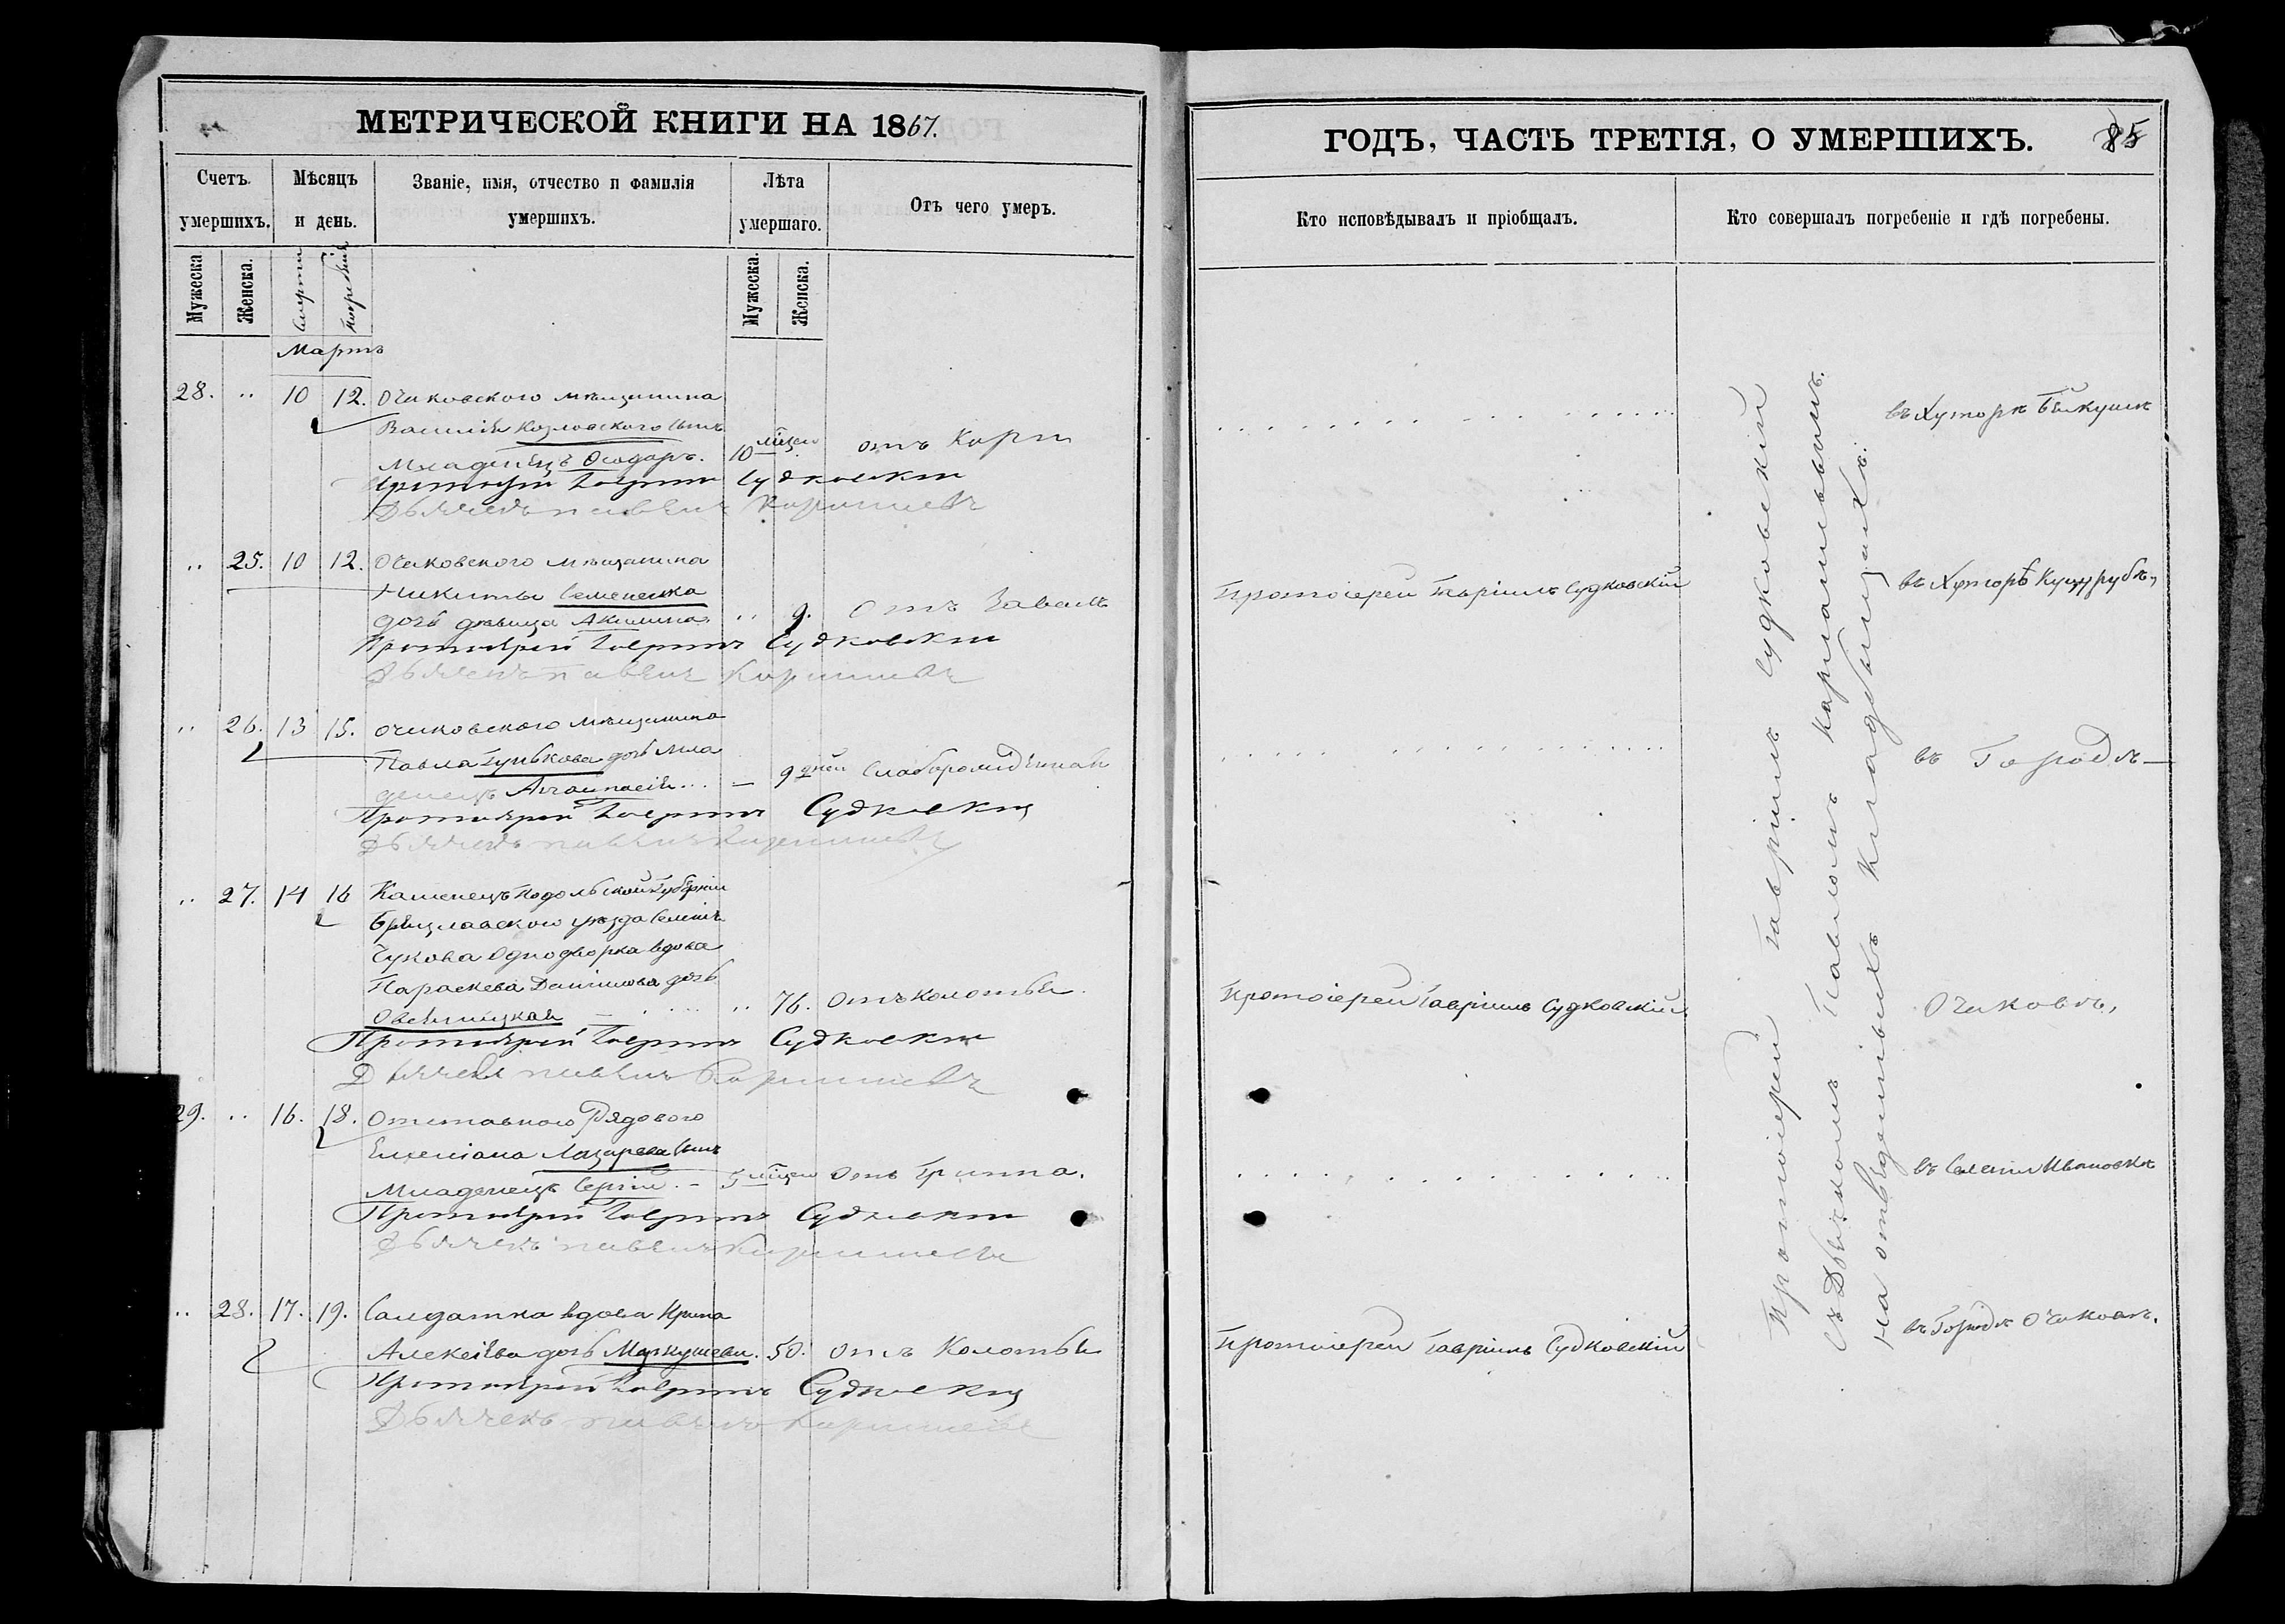 МЕТРИЧЕСКОЙ КНИГИ НА 1867.
Счетъ умершихъ.
Мѣсяцъ и день.
Званіе, имя, отчество и фамилія умершихъ.
Лѣта умершаго.
Отъ чего умеръ.
Мужеска
Женска.
Смерти
Погребенія
Мужеска.
Женска.
Мартъ
28. .. 10 12. Очаковского мѣщанина
Василія Козловского сынъ
Младенецъ Ѳеодоръ. 10 мѣцов отъ Кори
Протоіерей Гавріилъ Судковскій
Дьячекъ Павелъ
.. 25. 10 12. Очаковского мѣщанина
Никиты Семененка
дочь дѣвица Акилина. .. 9. Отъ
Протоіерей Гавріилъ Судковскій
Дьячекъ Павелъ
.. 26. 13 15. Очаковского мѣщанина
Павла Гунькова дочь мла
денецъ — 9 дней
Протоіерей Гавріилъ Судковскій
Дьячекъ Павелъ
.. 27. 14 16 Каменецъ Подольской Губерніи
Брацлавского уѣзда Селенія
Чукова Однодворка вдова
Параскева Даниилова дочь
.. 76. Отъ колотья.
Протоіерей Гавріилъ Судковскій
Дьячекъ Павелъ
29. .. 16. 18. Отставного Рядового
Емеліана Лазарева сынъ
Младенецъ Сергій. — 5 мѣцов Отъ Гриппа.
Протоіерей Гавріилъ Судковскій
Дьячекъ Павелъ
.. 28. 17. 19. Салдатка вдова Ирина
Алексіева дочь 50. Отъ Колотья
Протоіерей Гавріилъ Судковскій
Дьячекъ Павелъ
ГОДЪ, ЧАСТЬ ТРЕТІЯ, О УМЕРШИХЪ.
85
Кто исповѣдывалъ и пріобщалъ.
Кто совершалъ погребеніе и гдѣ погребены.
въ Хуторѣ Бейкушѣ
Протоіерей Гавріилъ Судковскій
въ Хуторѣ Куцурубѣ,
въ Городѣ —
Протоіерей Гавріилъ Судковскій
Очаковѣ,
въ Селеніи Ивановкѣ
Протоіерей Гавріилъ Судковскій
въ Городѣ Очаковѣ.
Протоіерей Гавріилъ Судковскій
съ Дьячкомъ Павломъ
на отведенныхъ кладбищахъ.